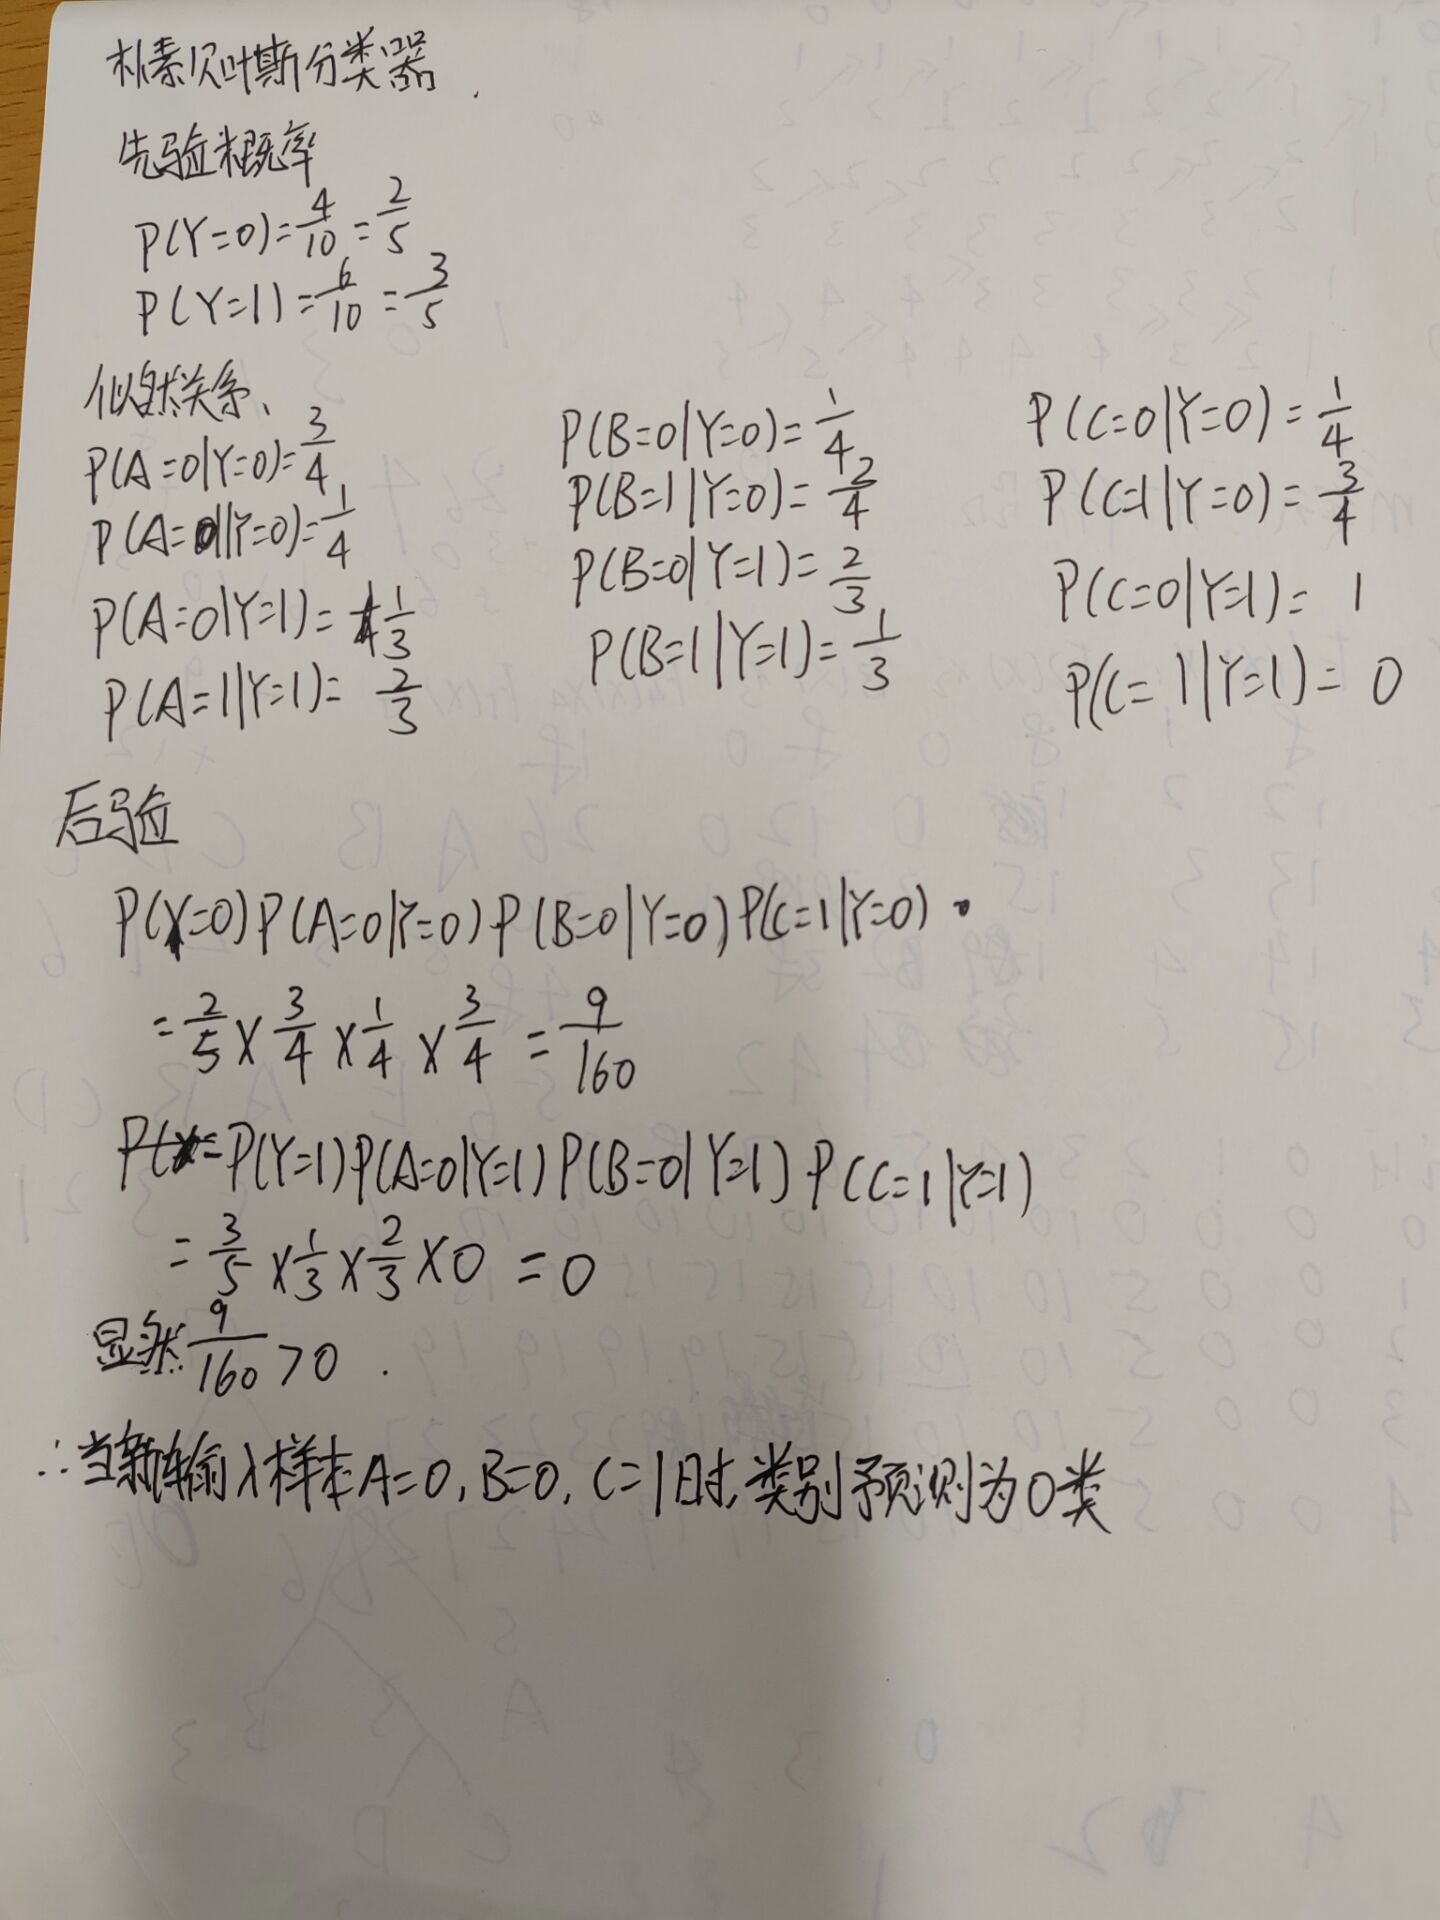 朴素贝叶斯分类器.
先验概率
P(Y=0)=4/10=2/5
P(Y=1)=6/10=3/5
似然关系、
P(A=0|Y=0)=3/4
P(A=0|Y=0)=1/4
P(A=0|Y=1)=1/3
P(A=1|Y=1)=2/3
P(B=0|Y=0)=1/4
P(B=1|Y=0)=2/4
P(B=0|Y=1)=2/3
P(B=1|Y=1)=1/3
P(C=0|Y=0)=1/4
P(C=1|Y=0)=3/4
P(C=0|Y=1)=1
P(C=1|Y=1)=0
后验
P(Y=0)P(A=0|Y=0)P(B=0|Y=0)P(C=1|Y=0)
=2/5×3/4×1/4×3/4=9/160
P(Y=1)P(A=0|Y=1)P(B=0|Y=1)P(C=1|Y=1)
=3/5×1/3×2/3×0=0
显然9/160>0.
∴当新输入样本A=0,B=0,C=1时,类别预测为0类